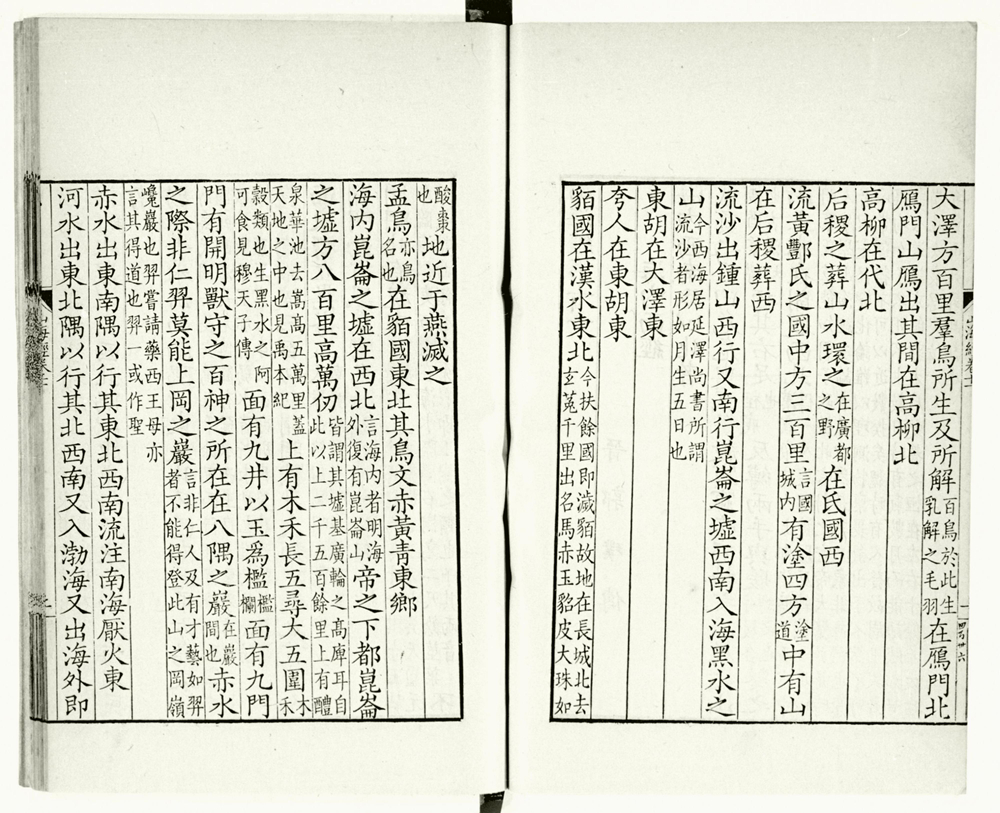 大澤方百里羣鳥所生及所解百鳥於此生乳解之毛羽在鴈門北
鴈門山鴈出其間在高柳北
高柳在代北
后稷之葬山水環之在廣都之野在氐國西
流黃酆氏之國中方三百里言國城內有塗四方塗道中有山
在后稷葬西
流沙出鍾山西行又南行崑崙之墟西南入海黑水之
山今西海居延澤尚書所謂流沙者形如月生五日也
東胡在大澤東
夸人在東胡東
貊國在漢水東北今扶餘國即濊貊故地在長城北去玄菟千里出名馬赤玉貂皮大珠如
酸棗也地近于燕滅之
孟鳥亦鳥名也在貊國東北其鳥文赤黃青東鄉
海內崑崙之墟在西北言海內者明海外復有崑崙山帝之下都崑崙
之墟方八百里高萬仞皆謂其墟基廣輪之高庳耳自此以上二千五百餘里上有醴
泉華池去嵩高五萬里蓋天地之中也見禹本紀上有木禾長五尋大五圍木禾
穀類也生黑水之阿可食見穆天子傳面有九井以玉爲檻檻欄面有九門
門有開明獸守之百神之所在在八隅之巖在巖間也赤水
之際非仁羿莫能上岡之巖言非仁人及有才藝如羿者不能得登此山之岡嶺
巉巖也羿嘗請藥西王母亦言其得道也羿一或作聖
赤水出東南隅以行其東北西南流注南海厭火東
河水出東北隅以行其北西南又入渤海又出海外即